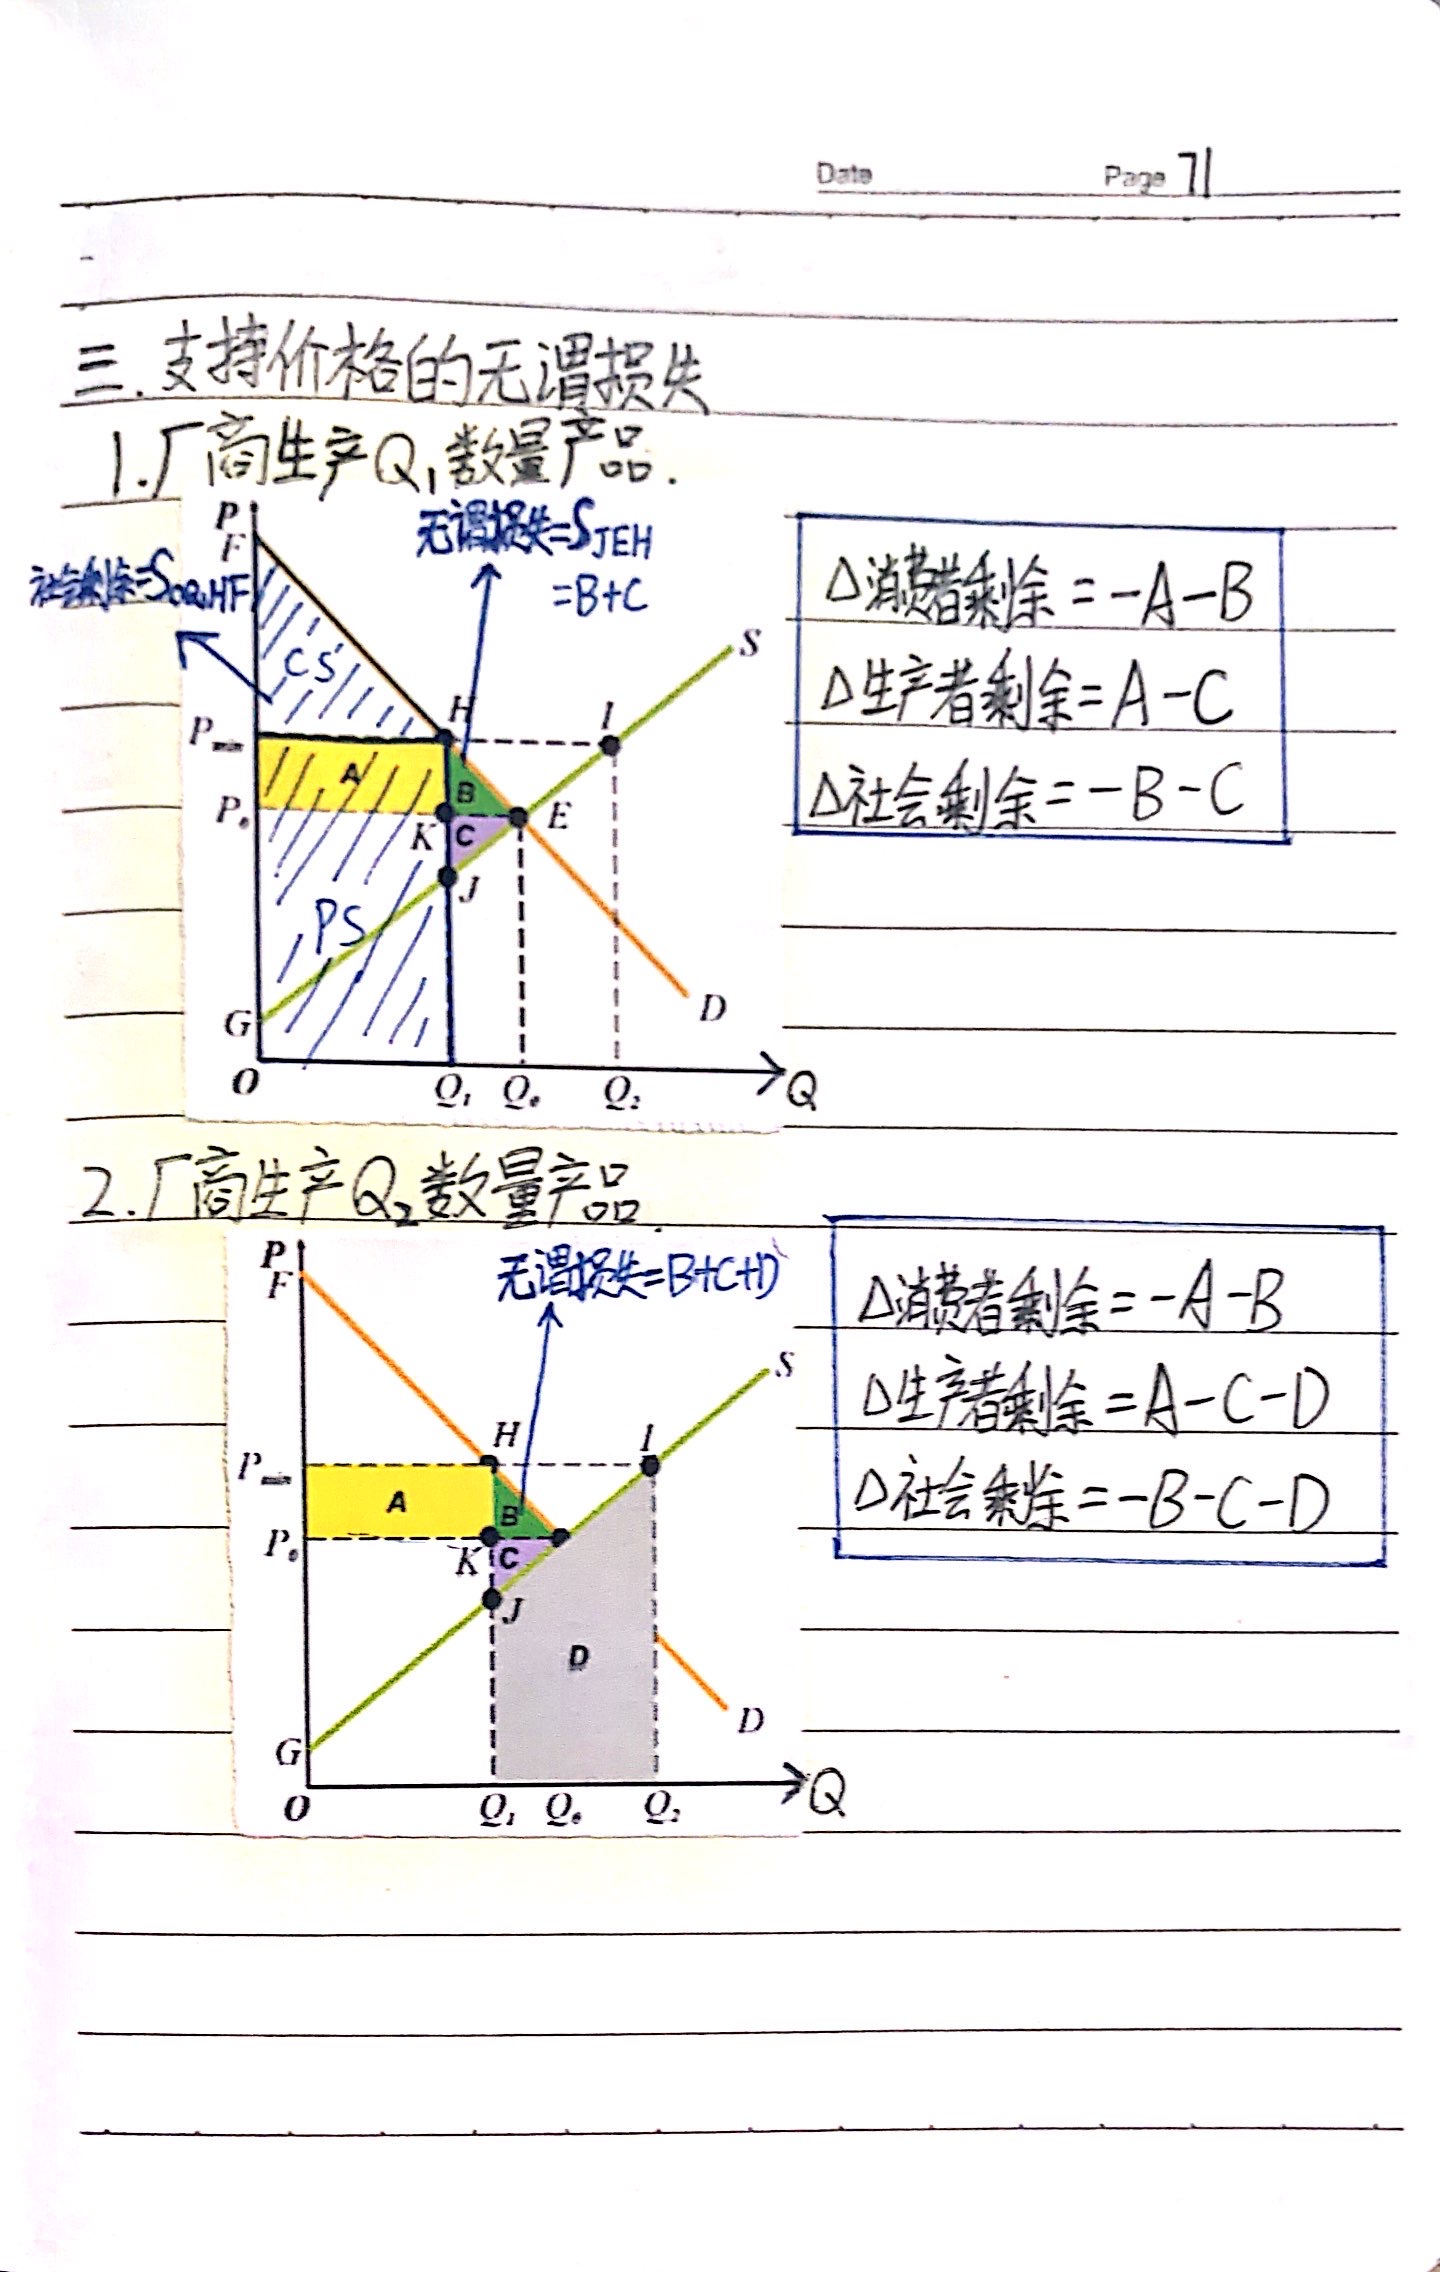 Date Page 71
三.支持价格的无谓损失
1.厂商生产Q₁数量产品.
P
F
无谓损失=S_JEH
=B+C
社会剩余=S_OQ₁HF
CS
S
H
I
P_min
A
B
P₀
K
C
E
J
PS
G
D
O Q₁ Q₀ Q₂ Q
Δ消费者剩余=-A-B
Δ生产者剩余=A-C
Δ社会剩余=-B-C
2.厂商生产Q₂数量产品.
P
F
无谓损失=B+C+D
S
H
I
P_min
A
B
P₀
K
C
J
D
D
G
O Q₁ Q₀ Q₂ Q
Δ消费者剩余=-A-B
Δ生产者剩余=A-C-D
Δ社会剩余=-B-C-D